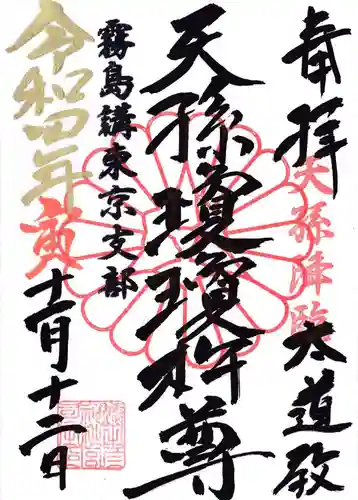 奉拝
天孫降臨
太道殿
天孫瓊瓊杵尊
霧島講東京支部
令和四年
寅
十二月十二日